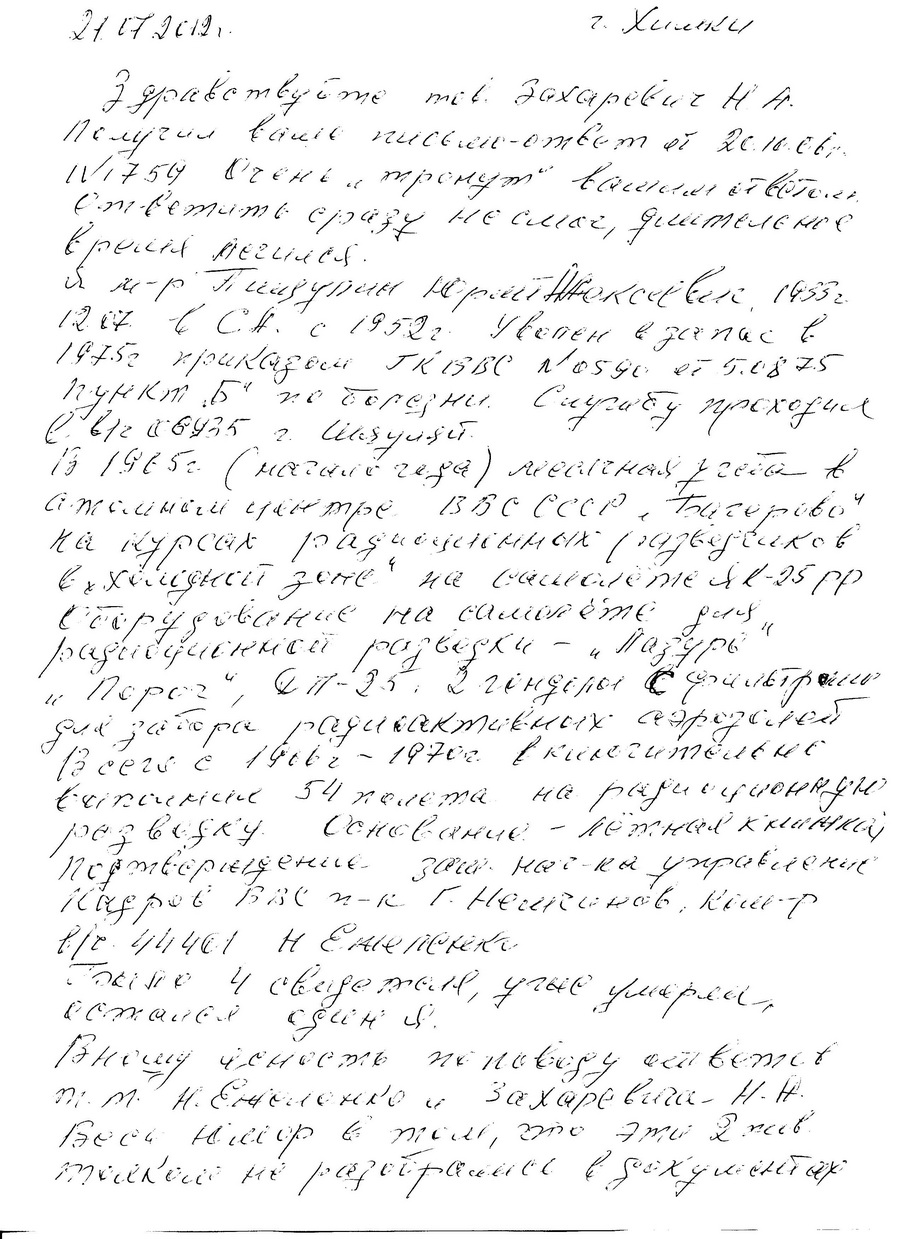 21.07.2012г. г. Химки
Здравствуйте тов. Захаревич Н А.
Получил ваше письмо-ответ от 20.10.06г.
N1759 Очень „тронут" вашим ответом.
Ответить сразу не смог, длительное
время лечился.
Я м-р Пищулин Юрий Алексеевич, 1933г.
12 07 в СА. с 1952г. Уволен в запас в
1975г приказом ГК ВВС N0590 от 5.08 75
пункт „Б" по болезни. Службу проходил
в в/ч 06935 г. Шяуляй.
В 1965г. (начало года) учеба в
атомном центре ВВС СССР „Багерово"
на курсах радиационных разведчиков
в „холодной зоне" на самолёте ЯК-25 рр
Оборудование на самолёте для
радиационной разведки - „Лазурь"
„Порог", ДП-25, 2 гондолы с фильтрами
для забора радиоактивных аэрозолей
Всего с 1966г - 1970г включительно
выполнил 54 полета на радиационную
разведку. Основание - лётная книжка,
подтверждение зам. нач-ка управление
Кадров ВВС п-к Г. Немчинов, ком-р
в/ч. 44461 Н Ежеленко
Было 4 свидетеля, уже умерли,
остался один я.
Вношу ясность по поводу ответов
т.т. Н. Ежеленко и Захаревича Н.А.
Весь юмор в том, что эти 2 тов.
толком не разобрались в документах